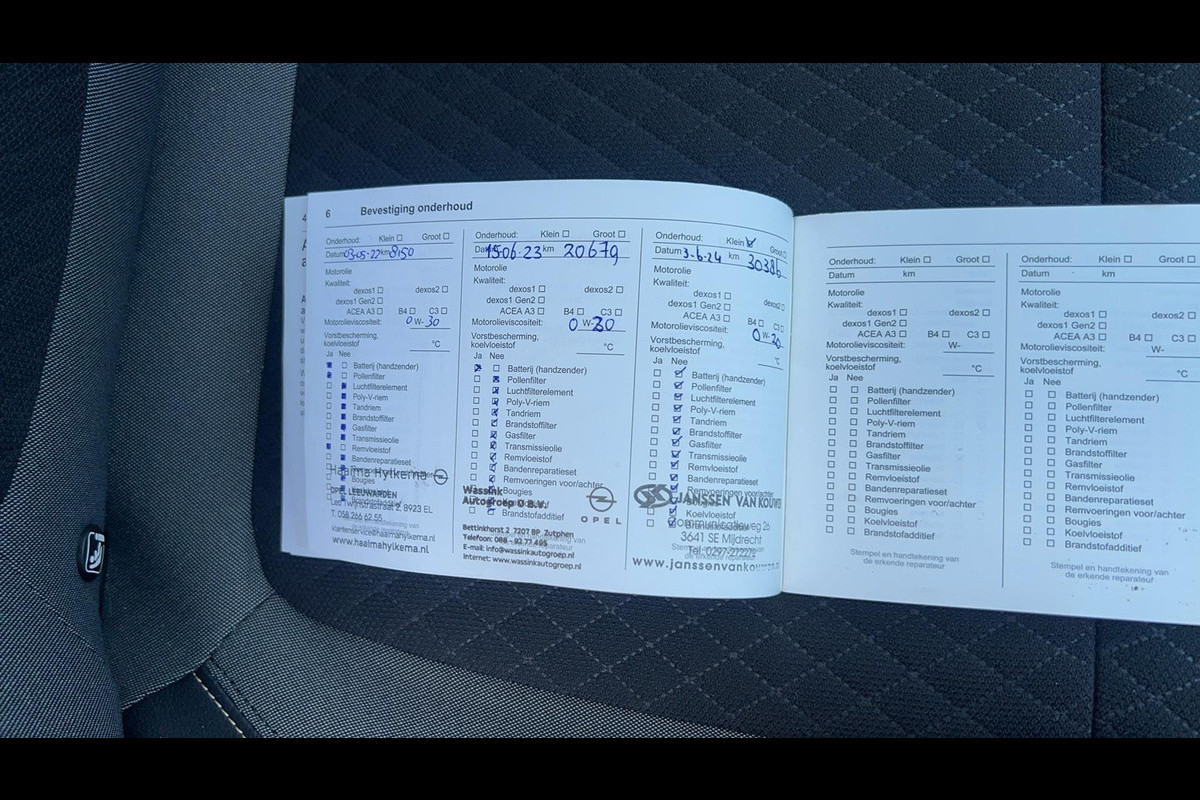 6 Bevestiging onderhoud
Onderhoud: Klein Groot
Datum 03-05-22 km 8150
Motorolie
Kwaliteit:
dexos1 dexos2
dexos1 Gen2
ACEA A3 B4 C3
Motorolieviscositeit: 0 W- 30
Vorstbescherming,
koelvloeistof °C
Ja Nee
Batterij (handzender)
Pollenfilter
Luchtfilterelement
Poly-V-riem
Tandriem
Brandstoffilter
Gasfilter
Transmissieolie
Remvloeistof
Bandenreparatieset
Haaima Hylkema
Bougies
OPEL LEEUWARDEN
8923 EL
T. 058 266 62 55
www.haaimahylkema.nl
Onderhoud: Klein Groot
Datum 15-06-23 km 20679
Motorolie
Kwaliteit:
dexos1 dexos2
dexos1 Gen2
ACEA A3 B4 C3
Motorolieviscositeit: 0 W- 30
Vorstbescherming,
koelvloeistof °C
Ja Nee
Batterij (handzender)
Pollenfilter
Luchtfilterelement
Poly-V-riem
Tandriem
Brandstoffilter
Gasfilter
Transmissieolie
Remvloeistof
Bandenreparatieset
Remvoeringen voor/achter
Bougies
Wassink
Autogroep B.V.
OPEL
Brandstofadditief
Bettinkhorst 2 7207 BP Zutphen
Telefoon: 088 - 92 77 495
E-mail: info@wassinkautogroep.nl
Internet: www.wassinkautogroep.nl
Onderhoud: Klein Groot
Datum 3-6-24 km 30386
Motorolie
Kwaliteit:
dexos1 dexos2
dexos1 Gen2
ACEA A3 B4 C3
Motorolieviscositeit: 0 W-
Vorstbescherming,
koelvloeistof °C
Ja Nee
Batterij (handzender)
Pollenfilter
Luchtfilterelement
Poly-V-riem
Tandriem
Brandstoffilter
Gasfilter
Transmissieolie
Remvloeistof
Bandenreparatieset
Remvoeringen voor/achter
JANSSEN VAN KOUWEN
Koelvloeistof
Communicatieweg 26
3641 SE Mijdrecht
Tel. 0297-272279
www.janssenvankouwen
Onderhoud: Klein Groot
Datum km
Motorolie
Kwaliteit:
dexos1 dexos2
dexos1 Gen2
ACEA A3 B4 C3
Motorolieviscositeit: W-
Vorstbescherming,
koelvloeistof °C
Ja Nee
Batterij (handzender)
Pollenfilter
Luchtfilterelement
Poly-V-riem
Tandriem
Brandstoffilter
Gasfilter
Transmissieolie
Remvloeistof
Bandenreparatieset
Remvoeringen voor/achter
Bougies
Koelvloeistof
Brandstofadditief
Stempel en handtekening van
de erkende reparateur
Onderhoud: Klein Groot
Datum km
Motorolie
Kwaliteit:
dexos1 dexos2
dexos1 Gen2
ACEA A3 B4 C3
Motorolieviscositeit: W-
Vorstbescherming,
koelvloeistof °C
Ja Nee
Batterij (handzender)
Pollenfilter
Luchtfilterelement
Poly-V-riem
Tandriem
Brandstoffilter
Gasfilter
Transmissieolie
Remvloeistof
Bandenreparatieset
Remvoeringen voor/achter
Bougies
Koelvloeistof
Brandstofadditief
Stempel en handtekening van
de erkende reparateur